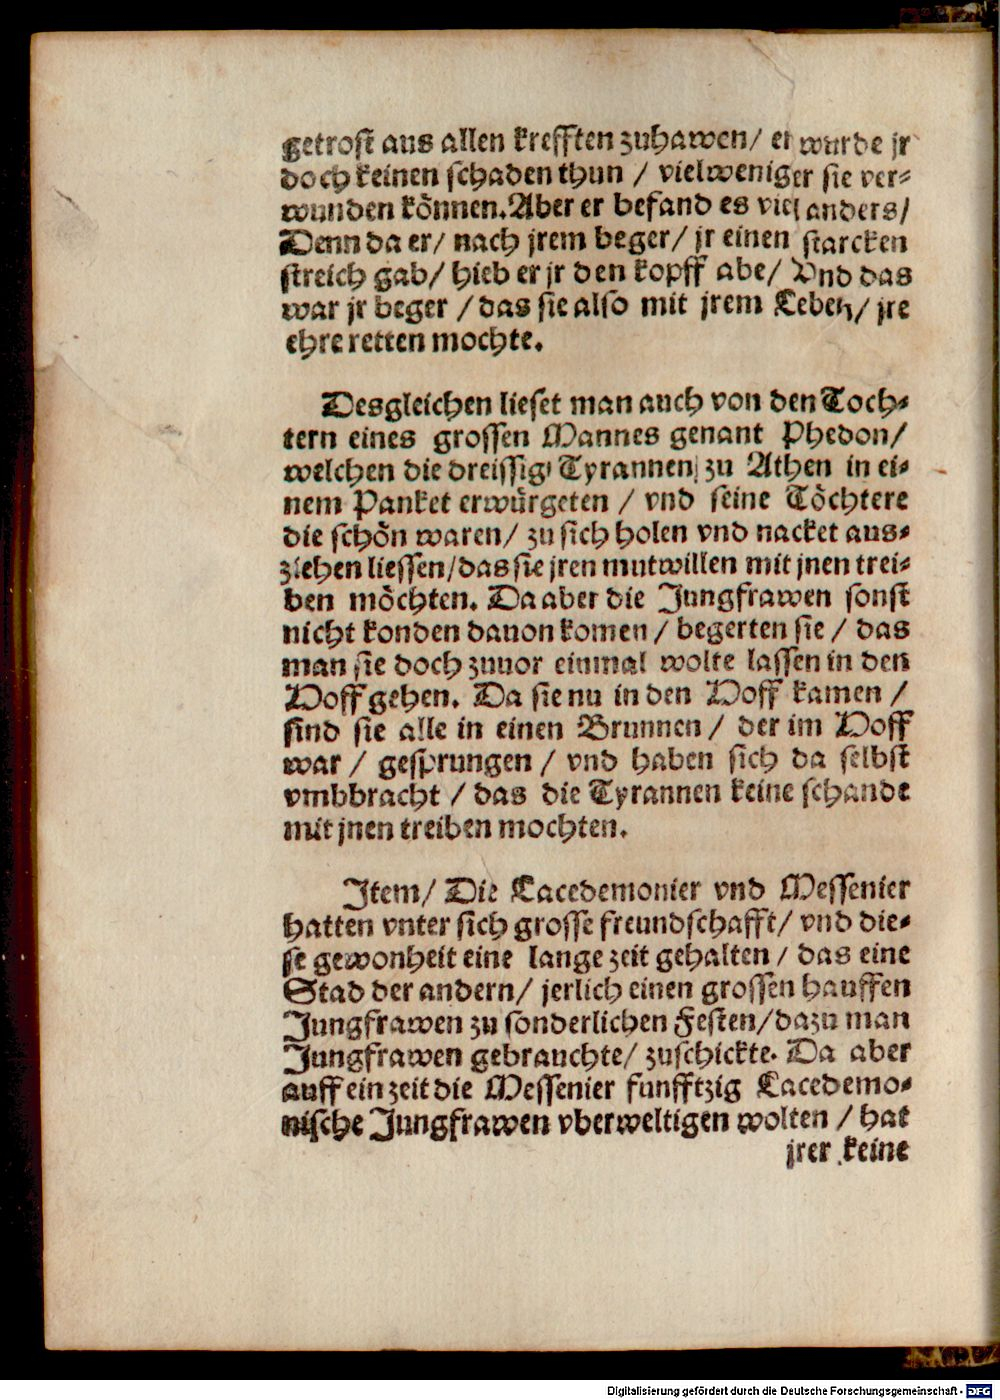 getrost aus allen krefften zuhawen/ er wurde jr
doch keinen schaden thun / vielweniger sie ver⸗
wunden können. Aber er befand es viel anders/
Denn da er/ nach jrem beger/ jr einen starcken
streich gab/ hieb er jr den kopff abe/ Vnd das
war jr beger / das sie also mit jrem Leben/ jre
ehre retten mochte.
Desgleichen lieset man auch von den Toch⸗
tern eines grossen Mannes genant Phedon/
welchen die dreissig Tyrannen zu Athen in ei⸗
nem Panket erwürgeten / vnd seine Töchtere
die schön waren/ zu sich holen vnd nacket aus⸗
ziehen liessen/ das sie jren mutwillen mit jnen trei⸗
ben möchten. Da aber die Jungfrawen sonst
nicht konden dauon komen / begerten sie / das
man sie doch zuuor einmal wolte lassen in den
Hoff gehen. Da sie nu in den Hoff kamen /
sind sie alle in einen Brunnen / der im Hoff
war / gesprungen / vnd haben sich da selbst
vmbbracht / das die Tyrannen keine schande
mit jnen treiben mochten.
Item/ Die Lacedemonier vnd Messenier
hatten vnter sich grosse freundschafft/ vnd die⸗
se gewonheit eine lange zeit gehalten / das eine
Stad der andern/ jerlich einen grossen hauffen
Jungfrawen zu sonderlichen Festen/ dazu man
Jungfrawen gebrauchte/ zuschickte. Da aber
auff ein zeit die Messenier funfftzig Lacedemo⸗
nische Jungfrawen vberweltigen wolten / hat
jrer keine
Digitalisierung gefördert durch die Deutsche Forschungsgemeinschaft - DFG